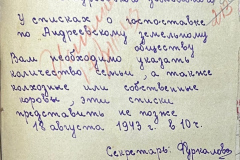 У списках госпоставке
по Андреевскому земельному
обществу
Вам необходимо указать
количество семьи, а также
колхозные или собственные
коровы, эти списки
представить не позже
18 августа 1943 г. в 10 ч.
Секретарь: Фуркалов